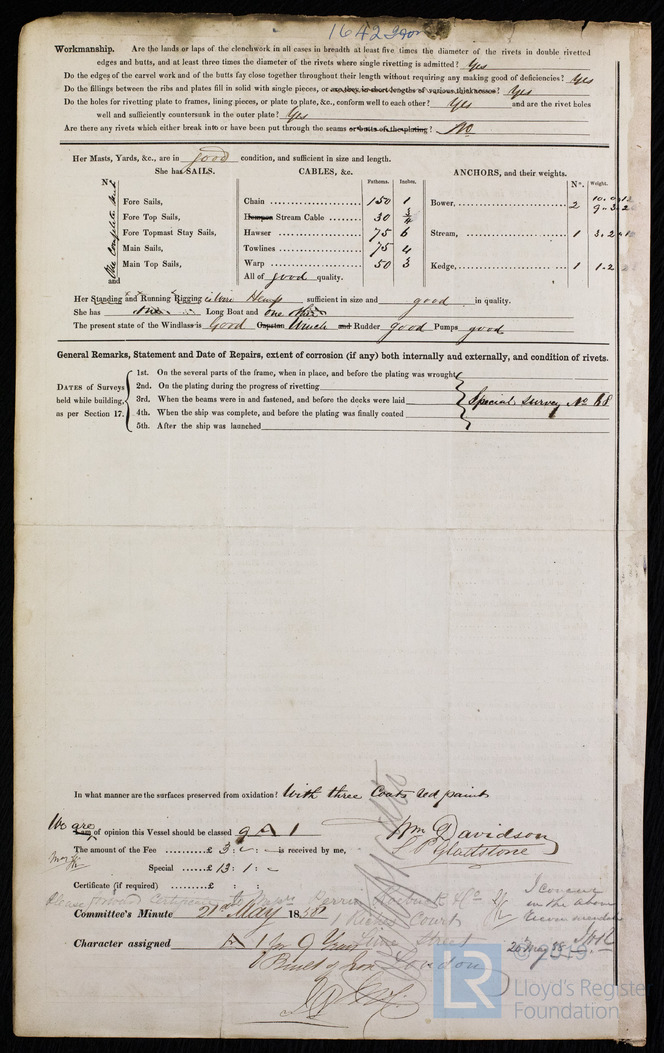 1642 Iron
Workmanship. Are the lands or laps of the clenchwork in all cases in breadth at least five times the diameter of the rivets in double rivetted
edges and butts, and at least three times the diameter of the rivets where single rivetting is admitted? Yes
Do the edges of the carvel work and of the butts fay close together throughout their length without requiring any making good of deficiencies? Yes
Do the fillings between the ribs and plates fill in solid with single pieces, or are they in short lengths of various thicknesses? Yes
Do the holes for rivetting plate to frames, lining pieces, or plate to plate, &c., conform well to each other? Yes and are the rivet holes
well and sufficiently countersunk in the outer plate? Yes
Are there any rivets which either break into or have been put through the seams or butts of the plating? No
Her Masts, Yards, &c., are in good condition, and sufficient in size and length.
She has SAILS. CABLES, &c. ANCHORS, and their weights.
No. Fathoms. Inches. No. Weight.
Fore Sails, Chain 150 1 Bower, 2
Fore Top Sails, Hempen Stream Cable 30 3/4
Fore Topmast Stay Sails, Hawser 75 6 Stream, 1
Main Sails, Towlines 75 4
Main Top Sails, Warp 50 3 Kedge, 1
and All of good quality.
Her Standing and Running Rigging Hemp sufficient in size and good in quality.
She has one Long Boat and one other
The present state of the Windlass is Good Capstan Winch and Rudder good Pumps good
General Remarks, Statement and Date of Repairs, extent of corrosion (if any) both internally and externally, and condition of rivets.
DATES of Surveys held while building, as per Section 17.
1st. On the several parts of the frame, when in place, and before the plating was wrought
2nd. On the plating during the progress of rivetting
3rd. When the beams were in and fastened, and before the decks were laid Special survey No 88
4th. When the ship was complete, and before the plating was finally coated
5th. After the ship was launched
In what manner are the surfaces preserved from oxidation? With three Coats red paint
We are
I am of opinion this Vessel should be classed 9 A 1
Wm Davidson
The amount of the Fee £ 3 : - : - is received by me,
Gladstone
Special £ 13 : 1 : -
Certificate (if required) £ : :
I concur
in the above
Please forward Certificate to Messrs
Committee's Minute 21st May 1858
Court
Character assigned A 1 for 9 Years
Street
Built of Iron
London
© 2019
LR
Lloyd's Register
Foundation